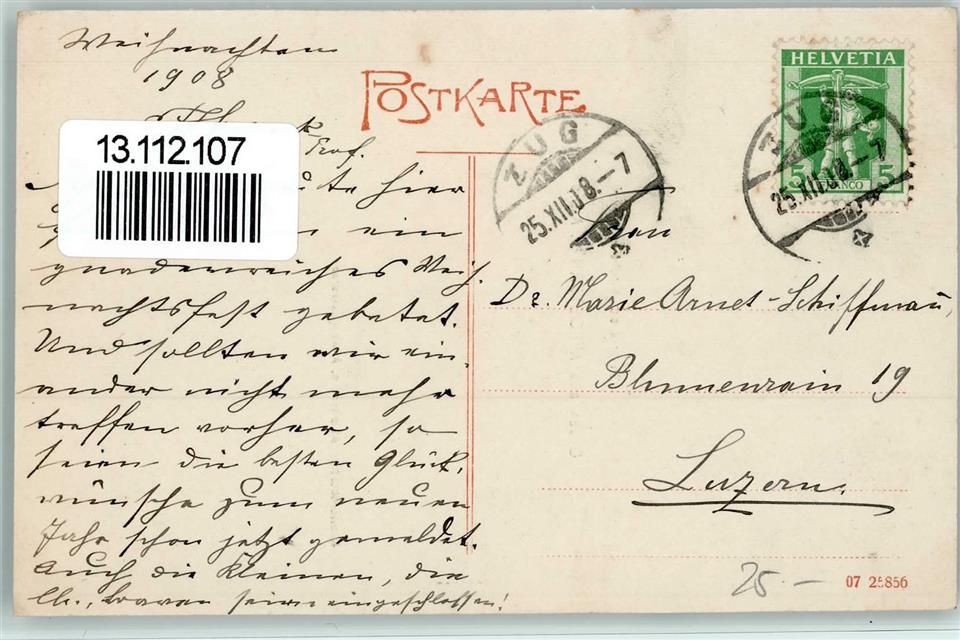 Weihnachten
1908
POSTKARTE
HELVETIA
5 FRANCO 5
ZUG
25.XII.08.–7
ZUG
25.XII.08.–7
13.112.107
Prof.
hier
ein
gnadenreiches Weih-
nachtsfest gebetet.
Und sollten wir ein-
ander nicht mehr
treffen vorher, so
seien die besten Glück-
wünsche zum neuen
Jahr schon jetzt gemeldet.
Auch die Kleinen, die
braven seien eingeschlossen!
Dr. Marie Arnet-Schiffmann,
Blumenrain 19
Luzern.
25.–
07 25856